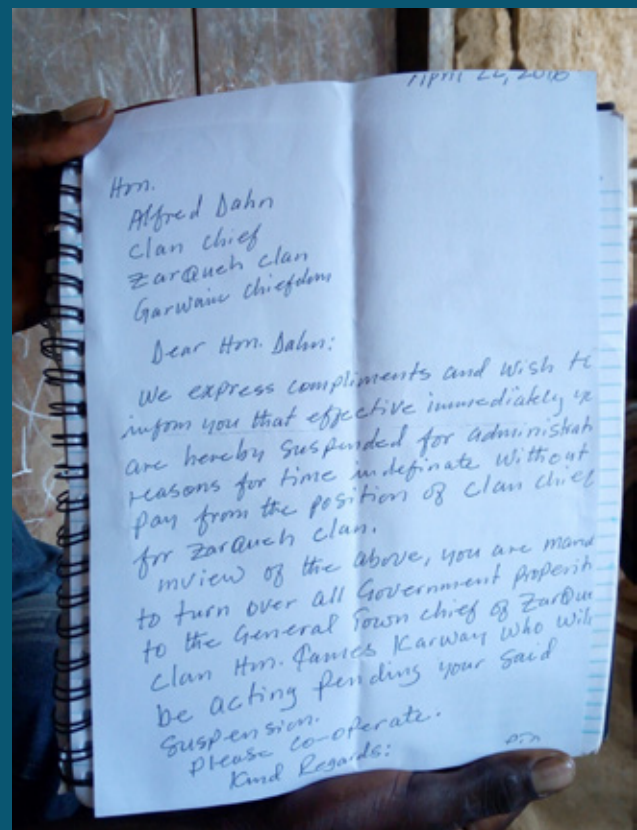 April 22, 2016
Hon.
Alfred Dahn
Clan Chief
ZarQueh Clan
Garwain Chiefdom
Dear Hon. Dahn:
We express compliments and wish t
inform you that effective immediately y
are hereby suspended for administrati
reasons for time indefinate without
pay from the position of clan chief
for ZarQueh clan.
inview of the above, you are mand
to turn over all Government properit
to the General Town chief of ZarQue
clan Hon. James Karway who will
be acting pending your said
suspension.
Please co-operate.
Kind Regards: